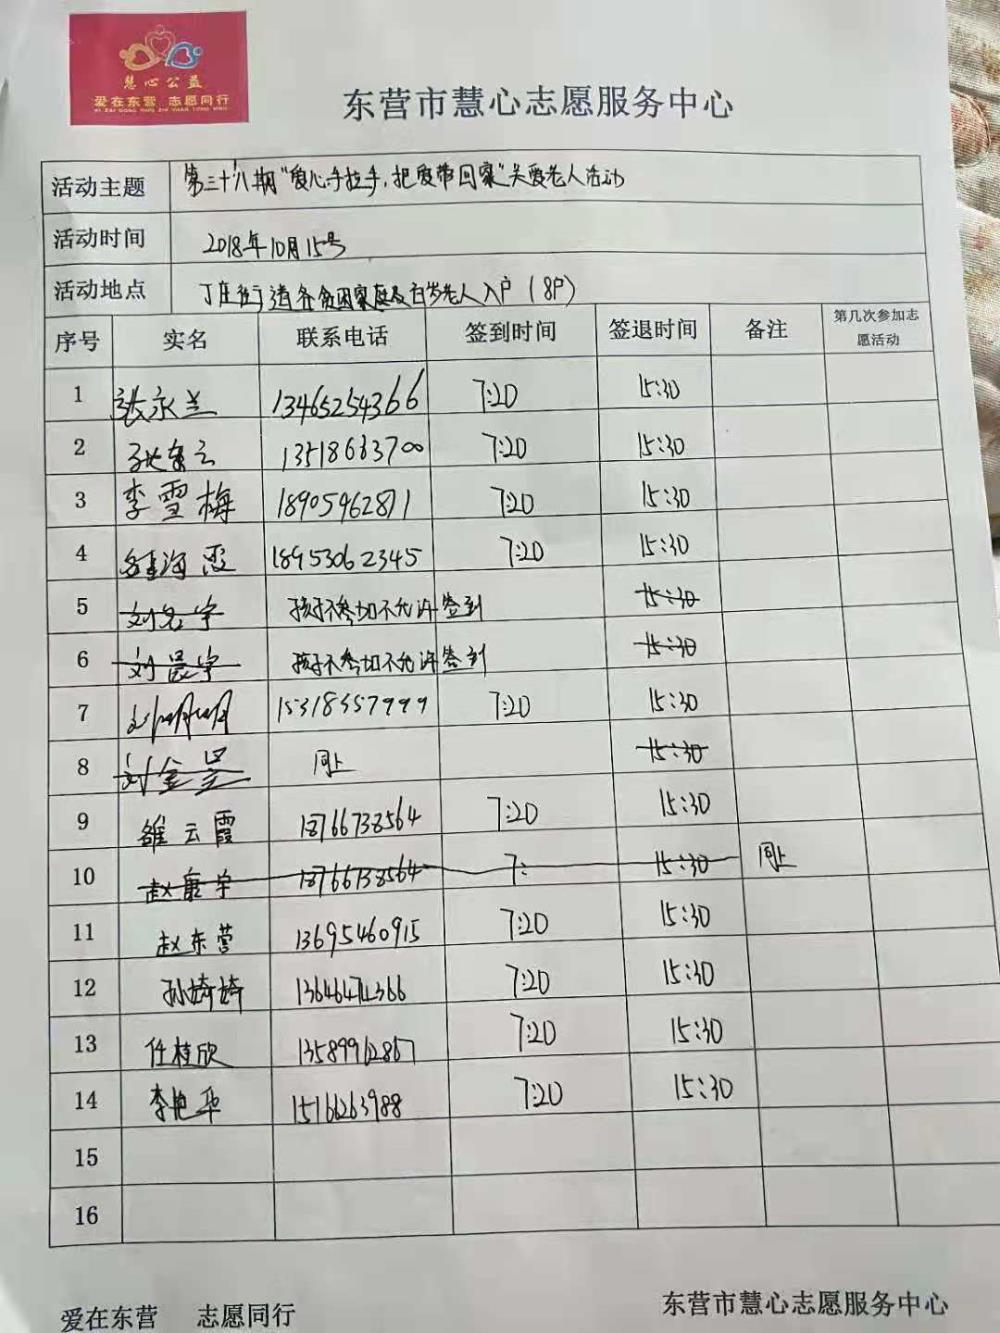 慧心公益
爱在东营 志愿同行
AI ZAI DONG YING ZHI YUAN TONG XING
东营市慧心志愿服务中心
活动主题 第三十八期“爱心手拉手,把爱带回家”关爱老人活动
活动时间 2018年10月15号
活动地点 丁庄街道各贫困家庭及百岁老人入户(8户)
序号 实名 联系电话 签到时间 签退时间 备注 第几次参加志愿活动
1 张永兰 13465254366 7:20 15:30
2 东云 13518663700 7:20 15:30
3 李雪梅 18905462871 7:20 15:30
4 海霞 18953062345 7:20 15:30
5 刘名宇 孩子不参加不允许签到 15:30
6 刘晨宇 孩子不参加不允许签到 15:30
7 15318357999 7:20 15:30
8 刘金昊 同上 15:30
9 雒云霞 18766738564 7:20 15:30
10 赵康宇 18766738564 7: 15:30 同上
11 赵东营 13695460915 7:20 15:30
12 孙婷婷 13646474366 7:20 15:30
13 任桂欣 13589962867 7:20 15:30
14 李艳华 15166263988 7:20 15:30
15
16
爱在东营 志愿同行 东营市慧心志愿服务中心